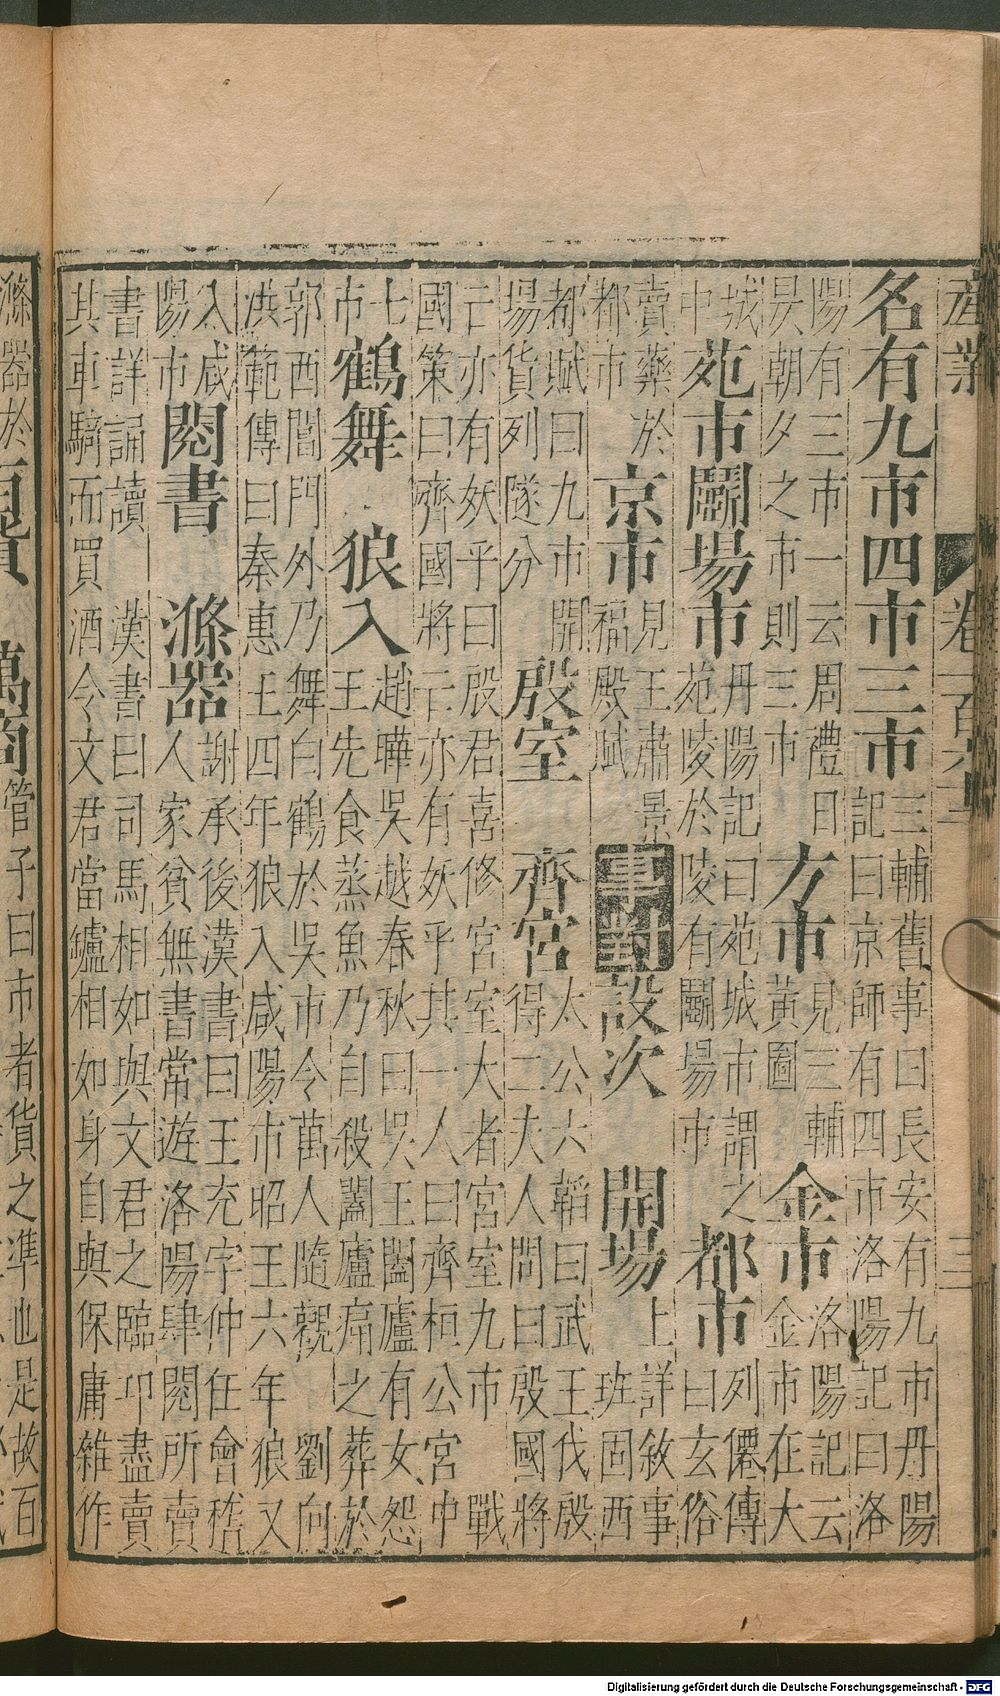 産業 卷一百 三
名有九市四市三市
三輔舊事曰長安有九市丹陽
記曰京師有四市洛陽記曰洛
陽有三市一云周禮日
昃朝夕之市則三市
方市
見三輔
黃圖
金市
洛陽記云
金市在大
城
中
苑市鬬場市
丹陽記曰苑城市謂之
苑陵於陵有鬬場市
都市
列僊傳
曰玄俗
賣藥於
都市
京市
見王肅景
福殿賦
事對
設次 開場
上詳敘事
班固西
都賦曰九市開
場貨列隧分
殷室 齊宮
太公六韜曰武王伐殷
得二夫人問曰殷國將
亡亦有妖乎曰殷君喜修宮室大者宮室九市戰
國策曰齊國將亡亦有妖乎其一人曰齊桓公宮中
七
市
鶴舞 狼入
趙曄吳越春秋曰吳王闔廬有女怨
王先食蒸魚乃自殺闔廬痛之葬於
郭西閶門外乃舞白鶴於吳市令萬人隨觀 劉向
洪範傳曰秦惠王四年狼入咸陽市昭王六年狼又
入咸
陽市
閱書 滌器
謝承後漢書曰王充字仲任會稽
人家貧無書常遊洛陽肆閱所賣
書詳誦讀 漢書曰司馬相如與文君之臨邛盡賣
其車騎而買酒令文君當鑪相如身自與保庸雜作
滌器於
管子曰市者貨之準也是故百
Digitalisierung gefördert durch die Deutsche Forschungsgemeinschaft - DFG